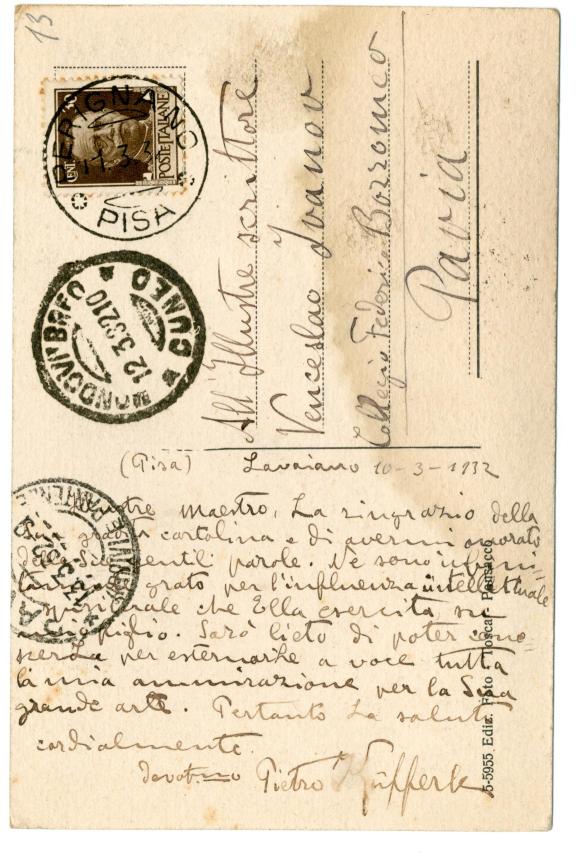 13
CENT
POSTE ITALIANE
PERIGNANO
11.3.3
PISA
MONDOVI' BREO
12.3.32 10
CUNEO
All'Illustre scrittore
Venceslao Ivanov
Collegio Federico Borromeo
Pavia
(Pisa) Lavaiano 10-3-1932
maestro, La ringrazio della
Sua gradita cartolina e di avermi onorato
delle Sue gentili parole. Ne sono infini-
grato per l'influenza intellettuale
che Ella esercita su
figlio. Sarò lieto di poter cono-
scerLa per esternarLe a voce tutta
la mia ammirazione per la Sua
grande arte. Pertanto La saluto
cordialmente.
devotmo Pietro Küfferle
13.3.32
5-5955 Ediz. Foto Toscar Ponsacco